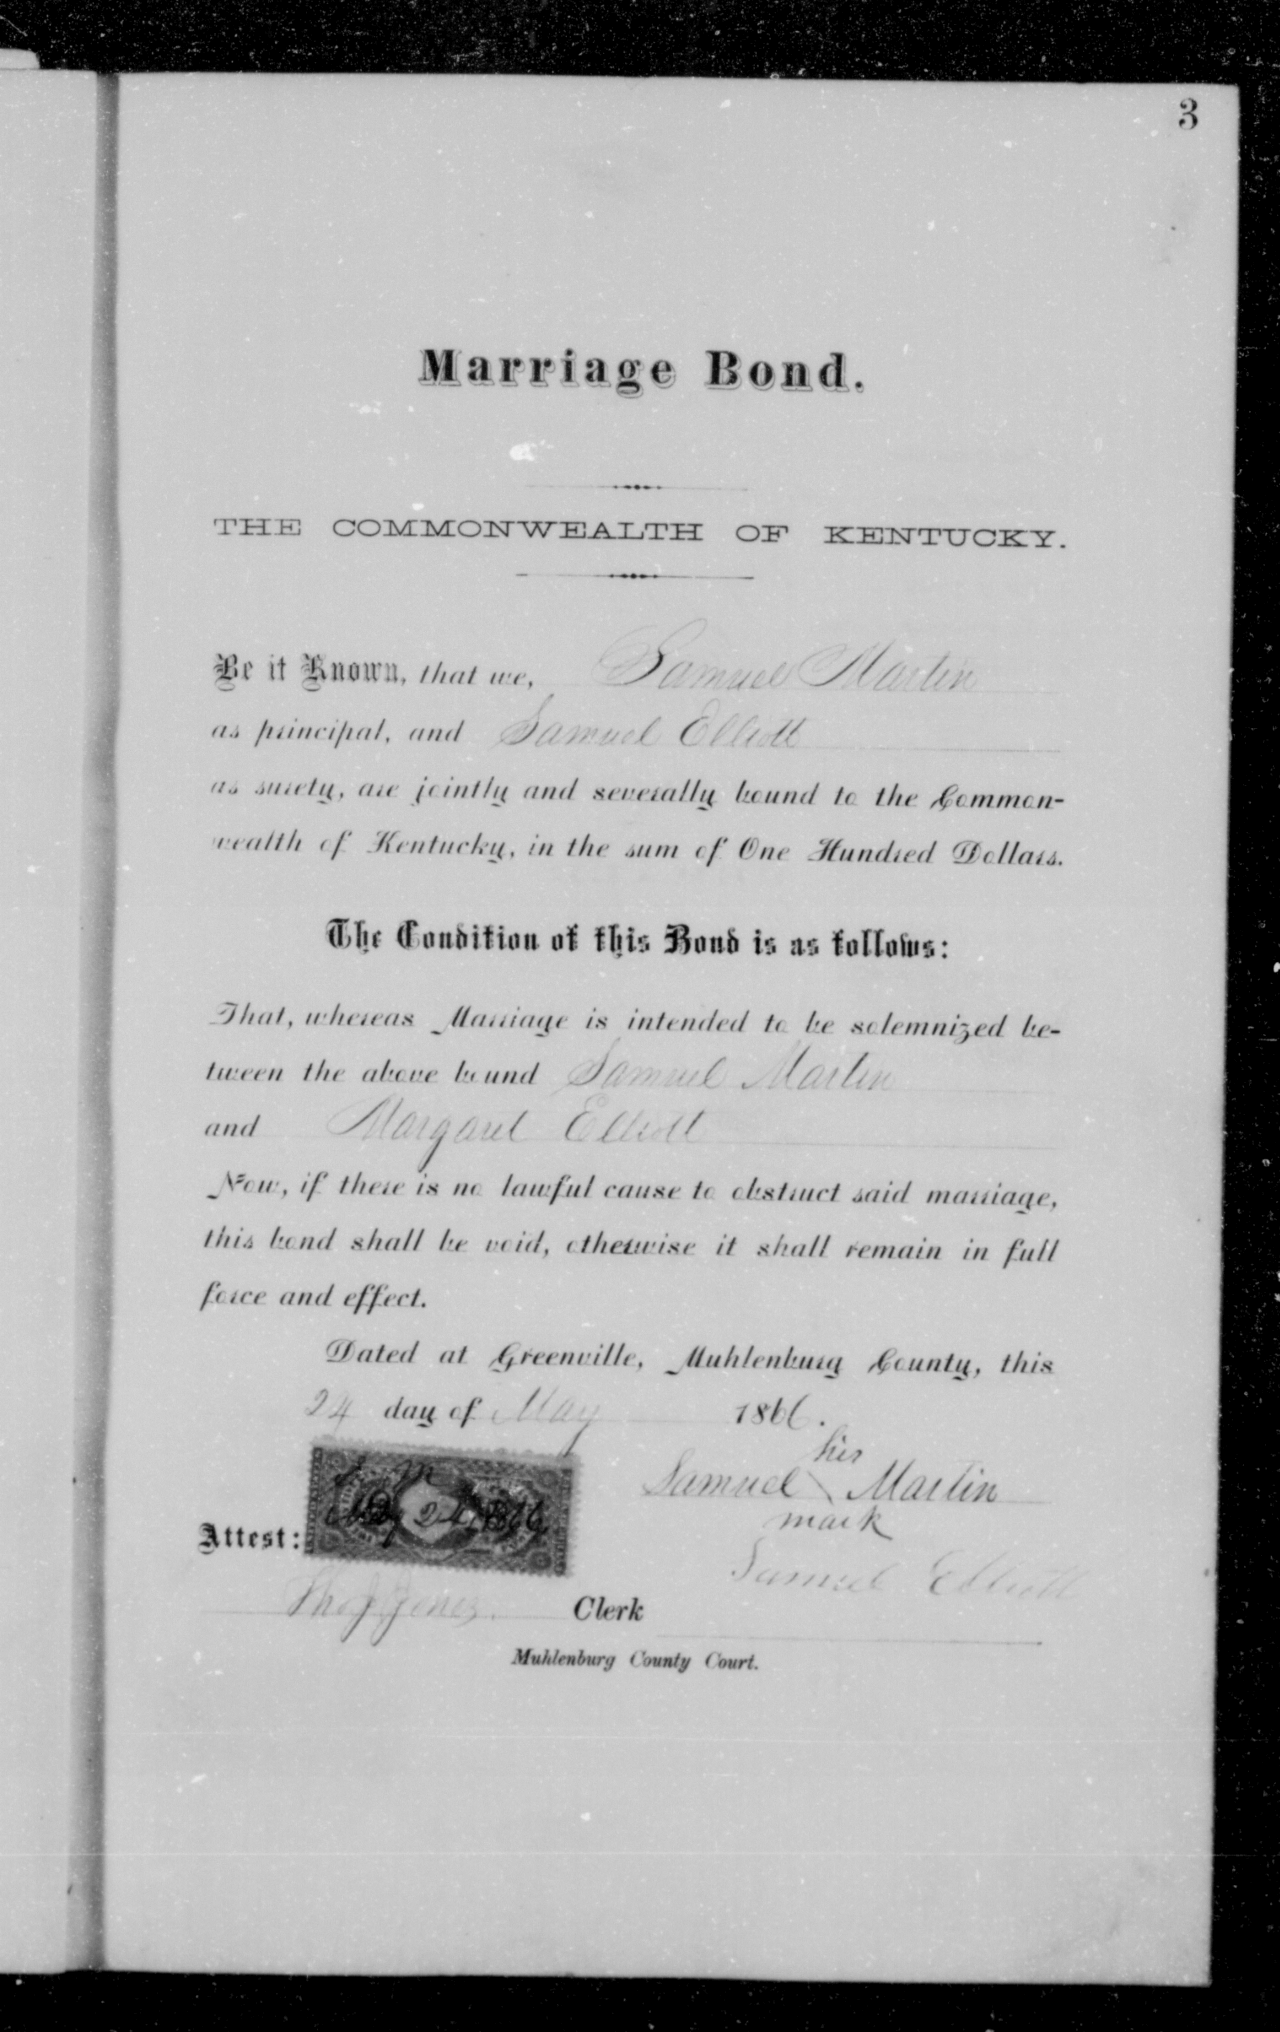 3
Marriage Bond.
THE COMMONWEALTH OF KENTUCKY.
Be it Known, that we, Samuel Martin
as principal, and Samuel Elliott
as surety, are jointly and severally bound to the Common-
wealth of Kentucky, in the sum of One Hundred Dollars.
The Condition of this Bond is as follows:
That, whereas Marriage is intended to be solemnized be-
tween the above bound Samuel Martin
and Margaret Elliott
Now, if there is no lawful cause to obstruct said marriage,
this bond shall be void, otherwise it shall remain in full
force and effect.
Dated at Greenville, Muhlenburg County, this
24 day of May 1866.
his
Samuel \ Martin
mark
S. M
May 24, 1866
Attest:
Samuel Elliott
Tho J Jones. Clerk
Muhlenburg County Court.